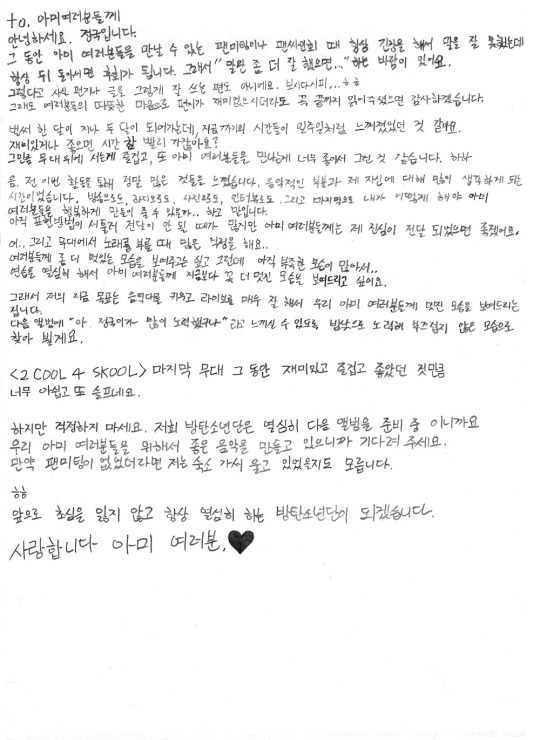 to. 아미여러분들께
안녕하세요. 정국입니다.
그 동안 아미 여러분들을 만날 수 있는 팬미팅이나 팬싸인회 때 항상 긴장을 해서 말을 잘 못했는데
항상 뒤 돌아서면 후회가 됩니다. 그래서 "말왼 좀 더 잘 했으면..." 하는 바람이 있어요.
그렇다고 사실 편지나 글을 그렇게 잘 쓰는 편도 아니에요. 보시다시피,..ㅎㅎ
그래도 여러분들의 따뜻한 마음으로 편지가 재미없으시더라도 꼭 끝까지 읽어주셨으면 감사하겠습니다.
벌써 한 달이 지나 두 달이 되어가는데, 지금까지의 시간들이 일주일처럼 느껴졌었던 것 같아요.
재미있거나 좋으면 시간 참 빨리 가잖아요?
그만큼 무대위에 서는게 즐겁고, 또 아미 여러분들을 만나는게 너무 좋아서 그런 것 같습니다. 하하
음. 전 이번 활동을 통해 정말 많은 것들을 느꼈습니다. 음악적인 부분과 제 자신에 대해 많이 생각하게 되는
시간이었습니다. 방송으로도, 라디오로도, 사진으로도, 인터뷰로도, 그리고 마지막으로 내가 어떻게 해야 아미
여러분들을 행복하게 만들어 줄 수 있을까.. 하고 말입니다.
아직 표현방법이 서툴러 전달이 안 될 때가 많지만 아미 여러분들께는 제 진심이 전달 되었으면 좋겠어요.
어.. 그리고 무대에서 노래를 부를 때 많은 걱정을 해요..
여러분들께 좀 더 멋있는 모습을 보여주고는 싶고 그런데 아직 부족한 모습이 많아서..
연습을 열심히 해서 아미 여러분들께 지금보다 꼭 더 멋진 모습을 보여드리고 싶어요.
그래서 저의 지금 목표는 음역대를 키우고 라이브를 매우 잘 해서 우리 아미 여러분들께 멋진 모습을 보여드리는
겁니다.
다음 앨범에 "아. 정국이가 많이 노력했구나" 라고 느끼실 수 있도록 밤낮으로 노력해 부끄럽지 않은 모습으로
찾아 뵐게요.
<2 COOL 4 SKOOL> 마지막 무대 그 동안 재미있고 즐겁고 좋았던 짓만큼
너무 아쉽고 또 슬프네요.
하지만 걱정하지 마세요. 저희 방탄소년단은 열심히 다음 앨범을 준비 중 이니까요
우리 아미 여러분들을 위해서 좋은 음악을 만들고 있으니까 기다려 주세요.
만약 팬미팅이 없었더라면 저는 숙소 가서 울고 있었을지도 모릅니다.
ㅎㅎ
앞으로 초심을 잃지 않고 항상 열심히 하는 방탄소년단이 되겠습니다.
사랑합니다 아미 여러분.♥